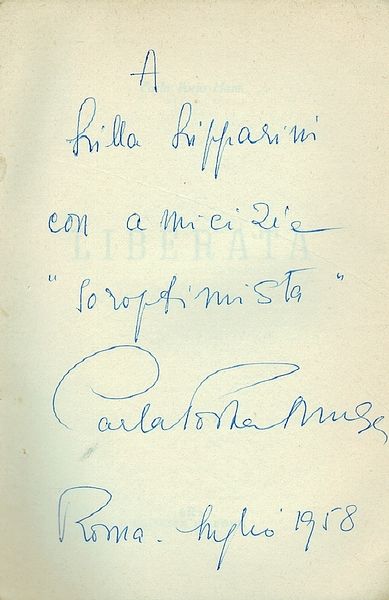 A
Lilla Lipparini
con amicizia
"soroptimista"
Carla Porta Musa
Roma. luglio 1958
LIBERATA